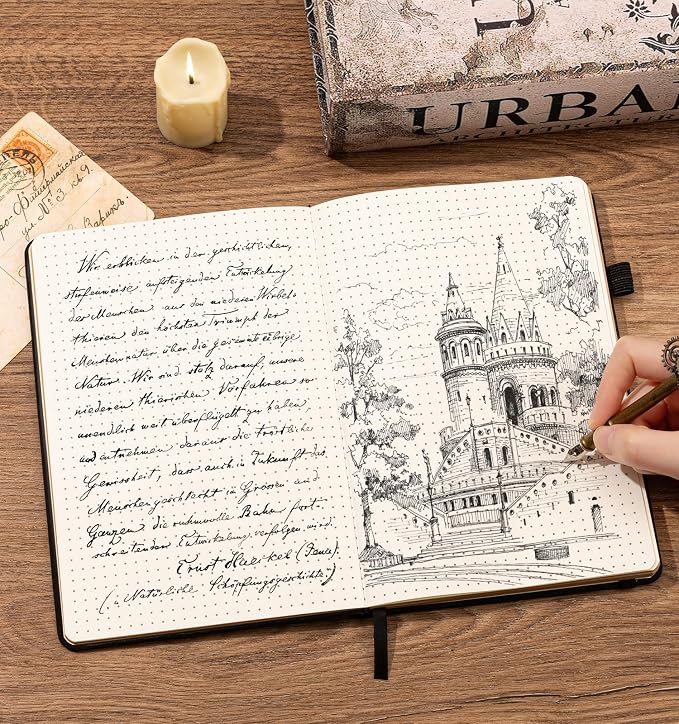 URBA
ARCHITECTUR
ул. № 3 кв. 9.
Wir erblicken in der geschichtlichen,
stufenweise aufsteigenden Entwickelung
der Menschen aus den niederen Wirbel-
thieren den höchsten Triumph der
Menschennatur über die gesammte übrige
Natur. Wir sind stolz darauf, unsere
niederen thierischen Vorfahren so
unendlich weit überflügelt zu haben,
und entnehmen daraus die tröstliche
Gewissheit, dass auch in Zukunft das
Menschengeschlecht im Grossen und
Ganzen die ruhmvolle Bahn fort-
schreitender Entwickelung verfolgen wird.
Ernst Haeckel (Jena).
(„Natürliche Schöpfungsgeschichte")